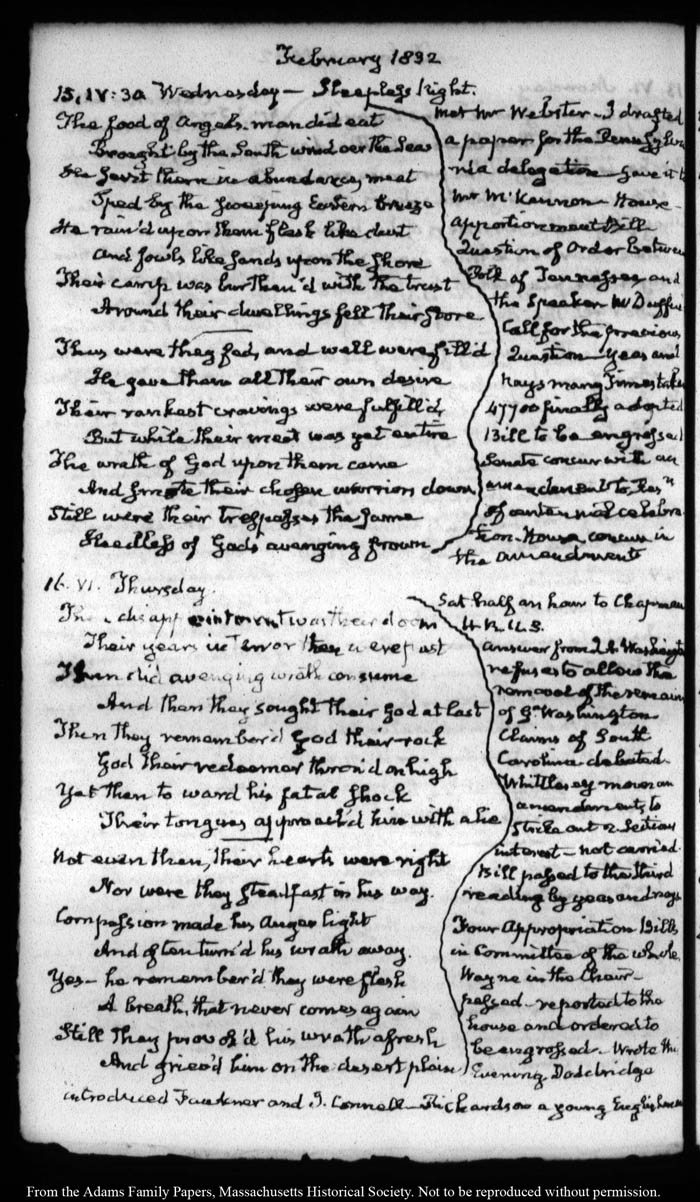 February 1832
15. IV: 30 Wednesday — Sleepless Night.
The food of Angels man did eat
Brought by the South wind oer the Seas
He sent them in abundance, meat
Sped by the sweeping Eastern breeze
He rain'd upon them flesh like dust
And fowls like sands upon the shore
Their camp was burthen'd with the trust
Around their dwellings fell their store
Thus were they fed, and well were fill'd
He gave them all their own desire
Their rankest cravings were fulfill'd,
But while their meat was yet entire
The wrath of God upon them came
And smote their chosen warriors down
Still were their trespasses the same
Heedless of Gods avenging frown
met Mr Webster - I drafted
a paper for the Pennsylva
nia delegation - gave it to
Mr McKennon - House -
apportionment Bill
Question of Order between
Polk of Tennessee, and
the Speaker McDuffie
Call for the previous
Question - yeas and
nays many times taken
47700 finally adopted
Bill to be engrossed
Senate concur with an
amendment to Res.n
of centennial celebra
tion - House concur in
the amendment
16. VI. Thursday.
The disappointment was their doom
Their years in terror then were past
Then did avenging wrath consume
And then they sought their God at last
Then they remember'd God their rock
God their redeemer thron'd on high
Yet then to ward his fatal shock
Their tongues approach'd him with a lie
Not even then, their hearts were right
Nor were they steadfast in his way.
Compassion made his Anger light
And often turn'd his wrath away.
Yes - he remember'd they were flesh
A breath, that never comes again
Still they provok'd his wrath afresh
And griev'd him on the desert plain
Sat half an hour to Chapman
H. R. U. S.
answer from J. A. Washington
refuses to allow the
removal of the remains
of G.l Washington
Claims of South
Carolina debated.
Whittlesey moves an
amendment, to
strike out 2. Section
interest - not carried.
Bill passed to the third
reading by yeas and nays
Four Appropriation Bills
in Committee of the whole,
Wayne in the Chair -
passed - reported to the
house and ordered to
be engrossed - Wrote this
Evening, Doddridge
introduced Faulkner and J. Connell - Richardson a young Englishman
From the Adams Family Papers, Massachusetts Historical Society. Not to be reproduced without permission.